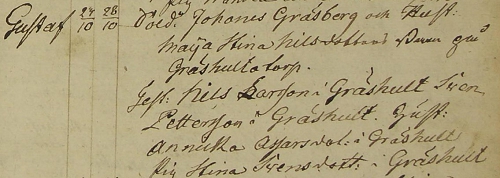 Gustaf 27/10 28/10 Föddr Johanes Gråsberg och Hust:
Maija Stina Nilsdotters Barn
Gråshultatorp.
Test: Nils Larsson i Gråshult Sven
Petterson i Gråshult. Hust:
Annika Assarsdot: i Gråshult
Pig Stina Svensdott: i Gråshult